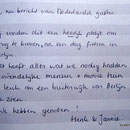 nu bericht van Nederlandse gasten
vonden dit een heerlijk plekje om
te komen, na een dag fietsen in
Berlijn.
heeft alles wat we nodig hadden
vriendelijke mensen + mooie tuin
leuk om een buitenwijk van Berlijn
te zien.
hebben genoten!
Henk & Jannie